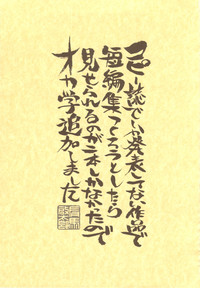 コピー誌でしか発表してない作品で
短編集つくろうとしたら
見せられるのが二本しかなかったので
オカ学追加しました